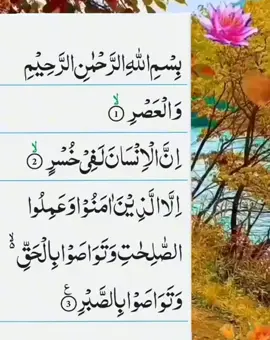 بِسْمِ اللهِ الرَّحْمٰنِ الرَّحِيْمِ
وَالْعَصْرِ ۙ﴿1﴾
اِنَّ الْاِنْسَانَ لَفِيْ خُسْرٍ ۙ﴿2﴾
اِلَّا الَّذِيْنَ اٰمَنُوْا وَعَمِلُوا
الصّٰلِحٰتِ وَتَوَاصَوْا بِالْحَقِّ ۙ۬
وَتَوَاصَوْا بِالصَّبْرِ ﴿3﴾ ع